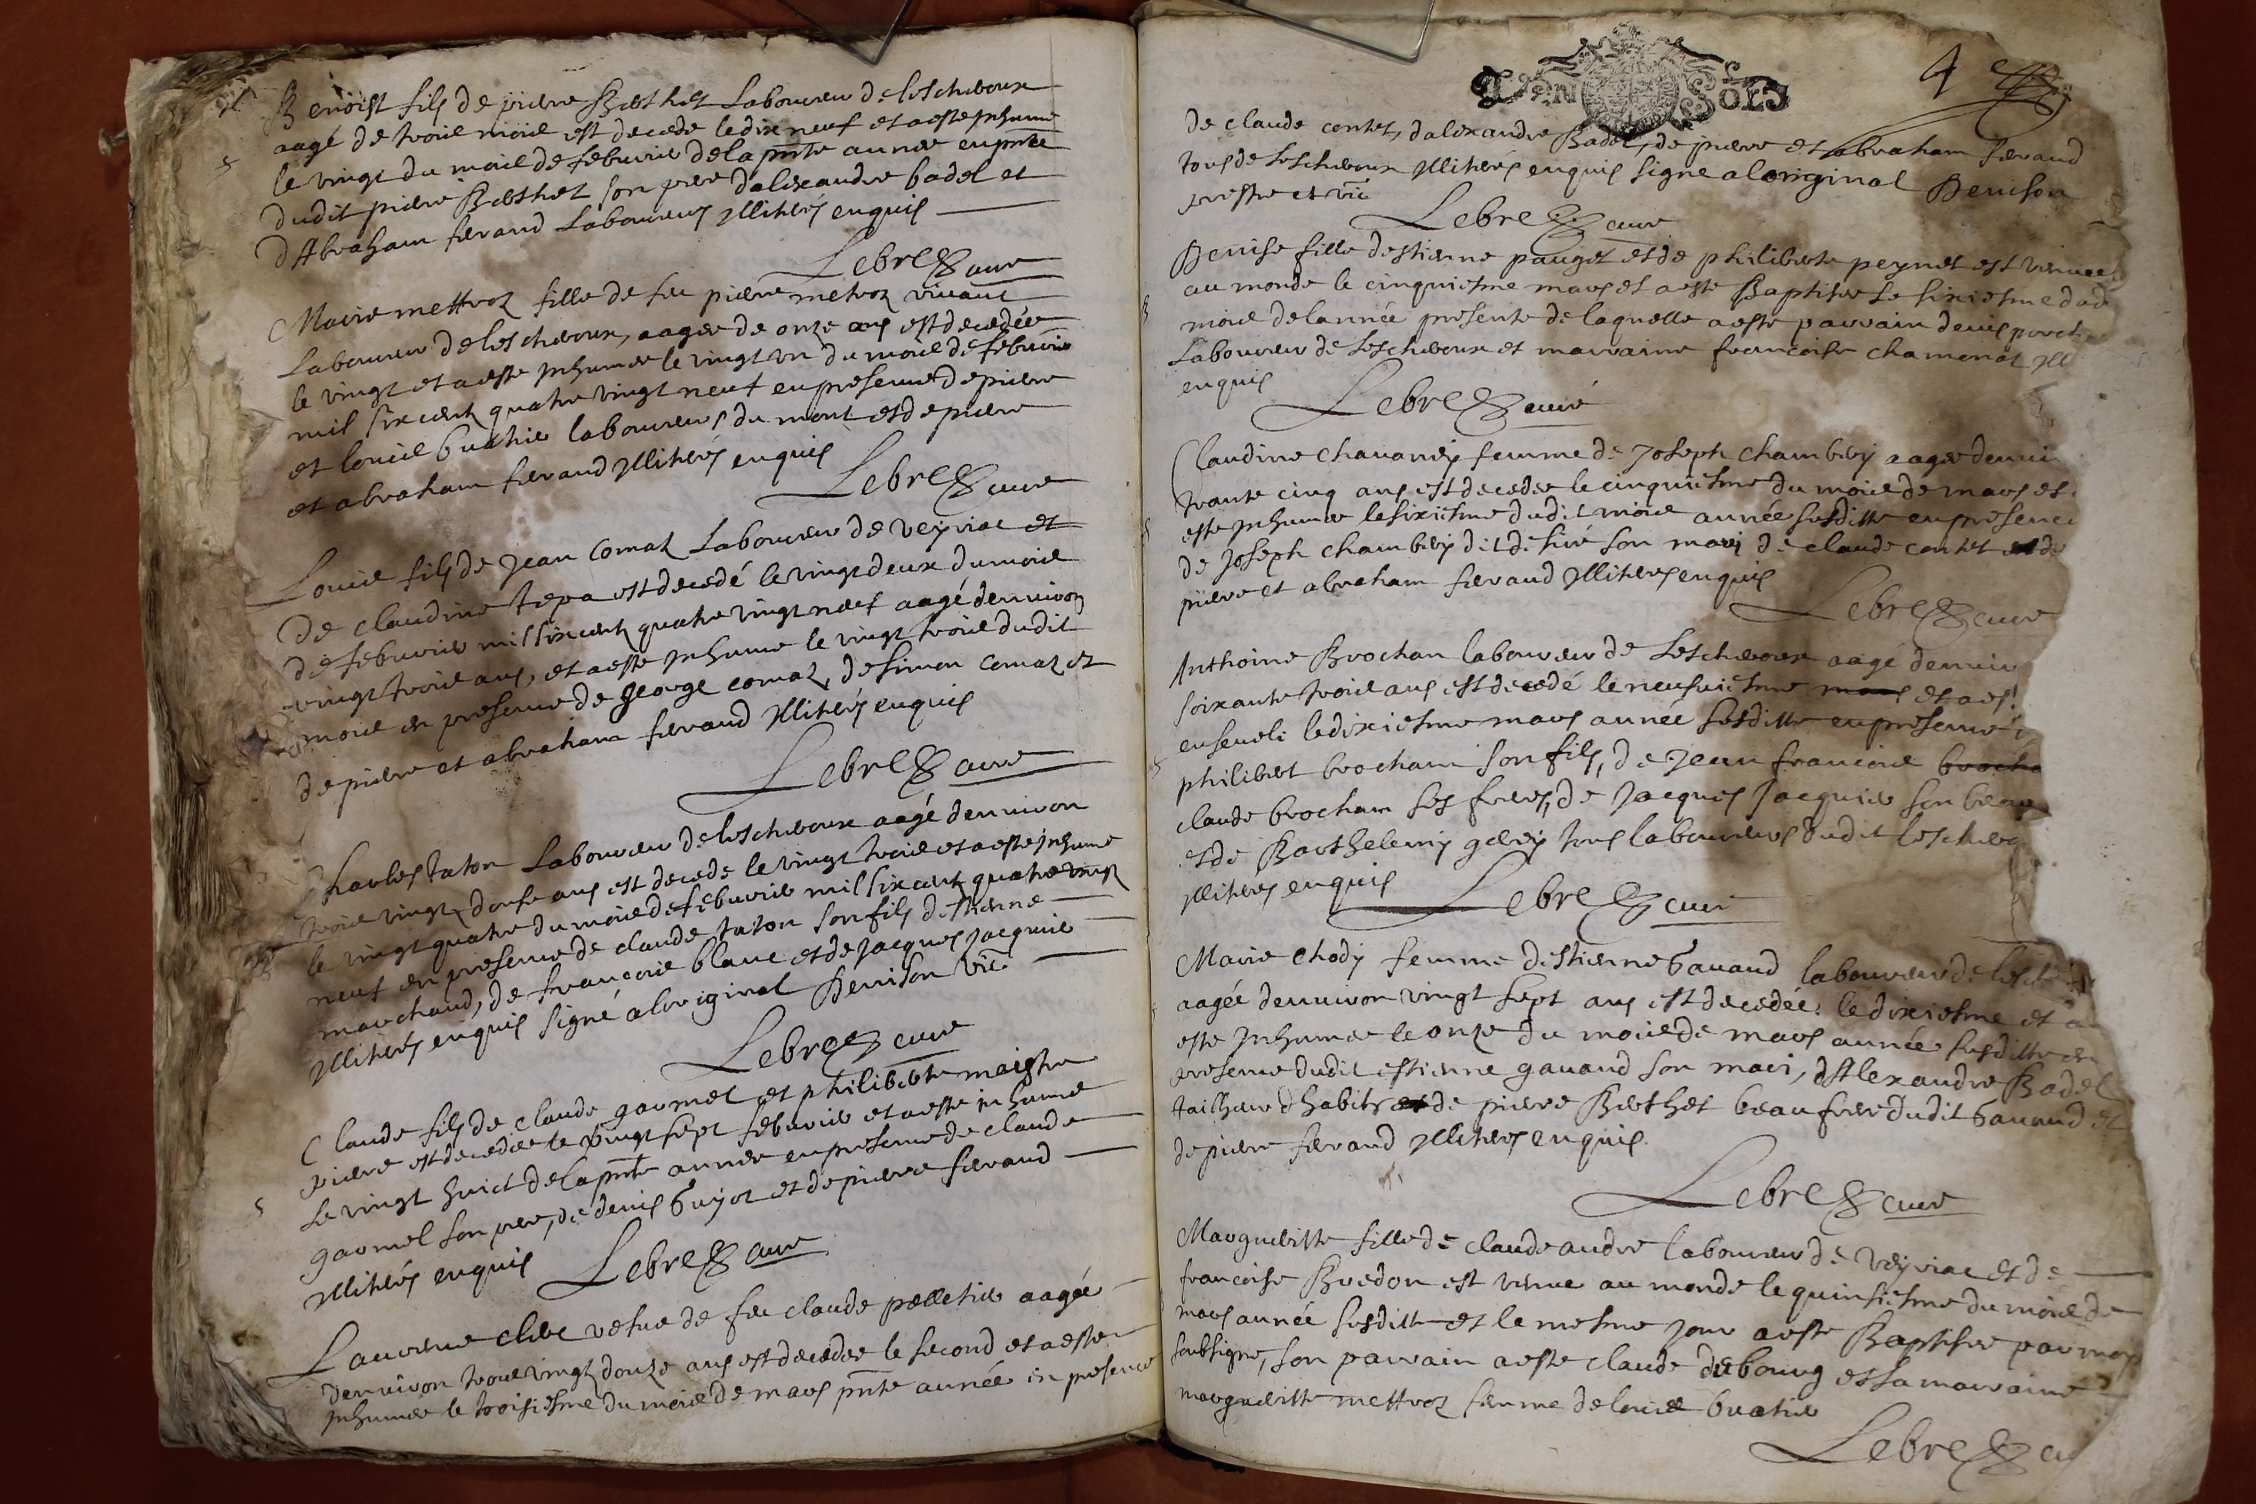 Benoist fils de pierre Berthet Laboureur de Lescheroux
aagé de trois mois est decede le dix neuf et a este Inhume
le vingt du mois de febvrier de la pnte annee en pnce
dudit pierre Berthet son pere dalexandre badel et
d'Abraham ferrand Laboureurs Illiterés enquis
Lebre curé
Marie mettroz fille de feu pierre metroz vivant
Laboureur de Lescheroux, aagee de onze ans est decedée
le vingt et a este Inhumee le vingt un du mois de febvrier
mil six cent quatre vingt neuf en presence de pierre
et louis buathier laboureurs du mont et de pierre
et abraham ferrand Illiterés enquis
Lebre curé
Louis fils de Jean Comaz Laboureur de veyriat et
de claudine tepa est decedé le vingt deux du mois
de febvrier mil six cent quatre vingt neuf aagé denviron
vingt trois ans, et a este Inhume le vingt trois dudit
mois en presence de george comaz, de simon comaz et
de pierre et abraham ferrand Illiterés enquis
Lebre curé
Charles taton Laboureur de Lescheroux aagé denviron
trois vingt douse ans est decede le vingt trois et a este Inhume
le vingt quatre du mois de febvrier mil six cent quatre vingt
neuf en presence de claude taton son fils destienne
marchand, de françois blanc et de Jacques Jacquier
Illiterés enquis signé a loriginal Denison vic
Lebre curé
Claude fils de claude gormel et philiberte maistre
pierre est decedée le vingt sept febvrier et a este inhumé
le vingt huict de la pnte annee en presence de claude
gormel son pere, de denis Guyot et de pierre ferrand
Illiterés enquis Lebre curé
Laurence clerc vefve de feu claude pelletier aagée
denviron trois vingt douze ans est decedee le second et a este
Inhumee le troisiesme du mois de mars pnte année in presence
4
DEUX SOLS
de claude contet, dalexandre Badel, de pierre et abraham ferrand
tous de Lescheroux Illiterés enquis signe a loriginal Denison
prestre et vic
Lebre curé
Denise fille destienne pauget et de philiberte peynet est venue
au monde le cinquiesme mars et a este Baptisee le sixiesme dud
mois de lannée presente de laquelle a este parrain denis
Laboureur de Lescheroux et marraine françoise chamenat Ill
enquis
Lebre curé
Claudine chavaney femme de Joseph chambery aagee denvir
trante cinq ans est decedee le cinquiesme du mois de mars et
este Inhumee le sixiesme dudit mois année susditte en presence
de Joseph chambery dit desiré son mary de claude contet et de
pierre et abraham ferrand Illiteres enquis
Lebre curé
Anthoine Brochan laboureur de Lescheroux aagé denvir
soixante trois ans est decedé le neufviesme mars et a es
enseveli le dixiesme mars année susditte en presence
philibert brocham son fils, de Jean francois broch
claude brocham ses freres, de Jacques Jacquier son beau
et de Barthelemy gery tous laboureurs dudit Lescher
Illiteres enquis
Lebre curé
Marie Chody femme destienne Gavand laboureur de Lesch
aagée denviron vingt sept ans est decedée le dixiesme et a
este Inhumee le onze du mois de mars année susditte en
presence dudit estienne gavand son mari, dAlexandre Badel
tailheur dhabits et de pierre Berthet beau frere dudit Gavand et
de pierre ferrand Illiteres enquis.
Lebre curé
Margueritte fille de claude andre laboureur de veyriat et de
francoise Buedon est venue au monde le quinsiesme du mois de
mars année susditte et le mesme jour a este Baptisee par moy
soubsigne, son parrain a este claude dubourg et sa marraine
margueritte mettroz femme de louis buatier
Lebre cu